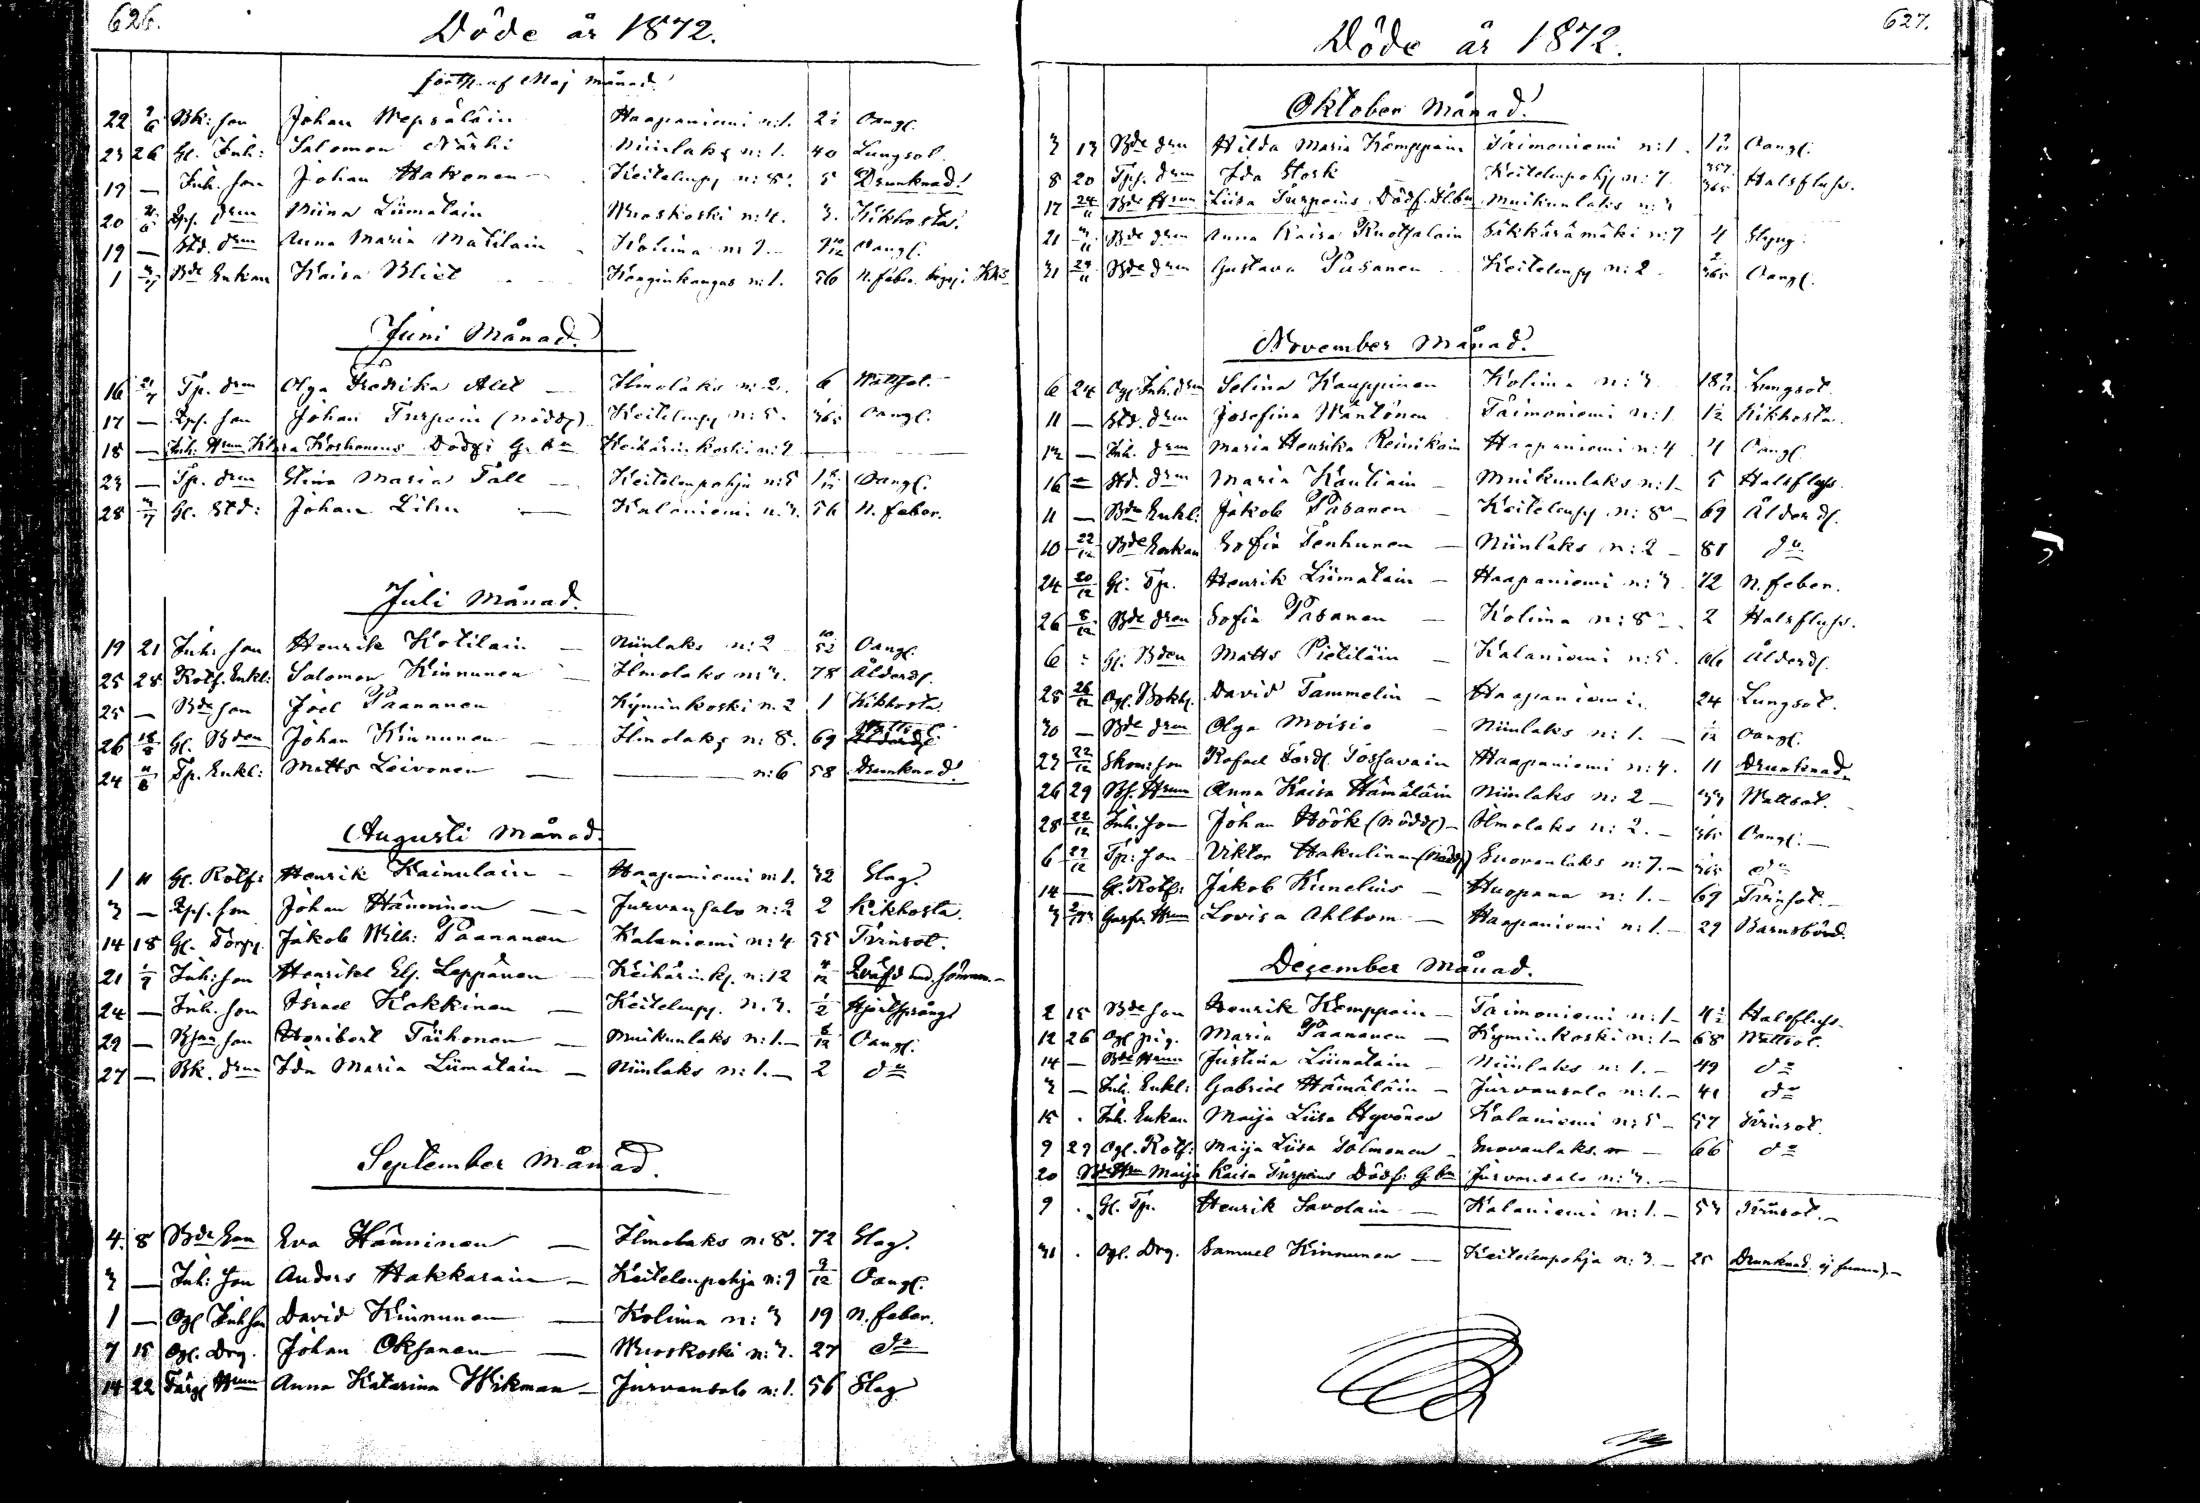 626.
Döde år 1872.
forts. af Maj månad.
22 Bk: son Johan Wepsäläin Haapaniemi n:1. 2½ Oangf.
23 26 Gl. Inh: Salomon Närhi Niinlaks n:1. 40 Lungsot.
19 — Inh. son Johan Hakonen — Keitelepy n:8. 5 Drunknad!
20 dren Miina Liimatain Wuoskoski n:4. 3. Kikhosta.
19 — Std. dren Anna Maria Matilain Kolima n:1 — Oangf.
1 Bde Enkan Kaisa Blick Kärginkangas n:1. 56 N. feber.
Juni Månad.
16 21/7 Tp. dren Olga Fredrika Ahl — Ilmolaks n:2. 6 Wattsot.
17 — son Johan Turpein (nöddp) Keitelepy n:5. Oangf.
18 — Inh. Hrun Klara Koskonens Dödf: G. bn Keihärinkoski n:2
23 — Tp. dren Stina Maria Tall — Keitelenpohja n:5 Oangf.
28 Gl. Std: Johan Lihn — Kalaniemi n:3. 56 N. feber.
Juli Månad.
19 21 Inh: son Henrik Kotilain — Niinlaks n:2 10/52 Oangf.
25 28 Rotf. Enkl: Salomon Kinnunen — Ilmolaks n:3. 78 Ålderdf.
25 — Bde son Joel Paananen Kyminkoski n:2 1 Kikhosta
26 18/8 Gl. Bden Johan Kinnunen — Ilmolaks n:8. 69
24 Tp. Enkl: Matts Leivonen — n:6 58 Drunknad!
Augusti Månad.
1 11 Gl. Rotf: Henrik Kainulain — Haapaniemi n:1. 32 Slag.
3 — son Johan Hänninen — Jurvansalo n:2 2 Kikhosta.
14 18 Gl. Torpp. Jakob Wilh: Paananen Kalaniemi n:4 55 Tvinsot.
21 1/9 Inh: son Henrikel Elf. Leppänen — Keihärinkj. n:12 Qväfd
24 — Inh. son Israel Kokkinen — Keitelepy. n:3. 1/2 Hjertsprång
29 — son Heribert Tiihonen — Muikunlaks n:1. — 6/12 Oangf.
27 — Bk. dren Ida Maria Liimatain — Niinlaks n:1. — 2 do
September Månad.
4. 8 Bde Eva Hänninen — Ilmolaks n:8. 72 Slag.
3 — Inh: son Anders Hakkarain — Keitelenpohja n:9 9/12 Oangf.
1 — Ogf Inh son David Kinnunen — Kolima n:3 19 N. feber.
7 15 Ogf. Drg. Johan Oksanen — Wuoskoski n:3. 27 do
14 22 Färg Hrun Anna Katarina Wikman — Jurvansalo n:1. 56 Slag
627.
Döde år 1872.
Oktober Månad!
3 13 Bde dren Hilda Maria Kemppain Taimoniemi n:1. Oangf.
8 20 dren Ida Stork Keitelenpohja n:7. 357/365 Halsfluss.
17 24/11 Bde Hrun Liisa Turpeins Dödf. Flbn Muikunlaks n:3
21 3/11 Bde dren Anna Kaisa Ruotsalain Säkkärämäki n:7 4 Strypf.
31 24/11 Bde dren Gustava Pasanen Keitelepy n:2 2/365 Oangf.
November Månad!
6 24 Ogf. Inh. dren Selina Kauppinen Kolima n:3 Lungsot.
11 — Std. dren Josefina Mäntönen Taimoniemi n:1 1½ Kikhosta.
13 — Inh. dren Maria Henrika Reinikain Haapaniemi n:4 4 Oangf.
16 — Std. dren Maria Kautiain — Muikunlaks n:1 — 5 Halsfluss.
11 — Bde Enkl: Jakob Pasanen — Keitelepy n:8 — 69 Ålderdf.
10 22/12 Bde Enkan Sofia Tenhunen — Niinlaks n:2 — 81 do
24 20/12 Gl. Tp. Henrik Liimatain — Haapaniemi n:3 72 N. feber.
26 8/12 Bde dren Sofia Pasanen — Kolima n:8 2 Halsfluss.
6 Gl. Bden Matts Pietiläin — Kalaniemi n:5. Ålderdf.
25 26/12 Ogf. Bokh. David Tammelin — Haapaniemi. 24 Lungsot.
30 — Bde dren Olga Moisio — Niinlaks n:1. — 1/12 Oangf.
23 22/12 son Rafael Ferd. Tossavain Haapaniemi n:4. 11 Drunknad.
26 29 Hrun Anna Kaisa Hämäläin Niinlaks n:2 — 33 Wattsot.
28 22/12 Inh: son Johan Höök (nöddp) — Ilmolaks n:2. — Oangf. —
6 22/12 Tp: son Viktor Hakulinen (nöddp) Suovanlaks n:7. — do
14 — Gl. Rotf: Jakob Kunelius — Huopana n:1. — 69 Tvinsot. —
3 Hrun Lovisa Ahlbom — Haapaniemi n:1. — 29 Barnsbörd.
December Månad.
2 15 Bde son Henrik Kemppain — Taimoniemi n:1 — 4½ Halsfluss.
12 26 Ogf pig. Maria Paananen — Kyminkoski n:1 — 68 Wattsot.
14 — Bde Hrun Justina Liimatain — Niinlaks n:1. — 49 do
3 — Inh. Enkl: Gabriel Hämäläin — Jurvansalo n:1. — 41 do
15 . Inh. Enkan Maija Liisa Hyvönen Kalaniemi n:5 — 57 Tvinsot.
9 29 Ogf. Rotf: Maija Liisa Salmonen — Suovanlaks — 66 do
20 Bde Hrun Maija Kaisa Turpeins Dödf: G. bn Jurvansalo n:3. —
9 . Gl. Tp. Henrik Savolain — Kalaniemi n:1. — 53 Tvinsot. —
31 . Ogf. Drg. Samuel Kinnunen — Keitelenpohja n:3. — 25 Drunknad, ej funnen. —